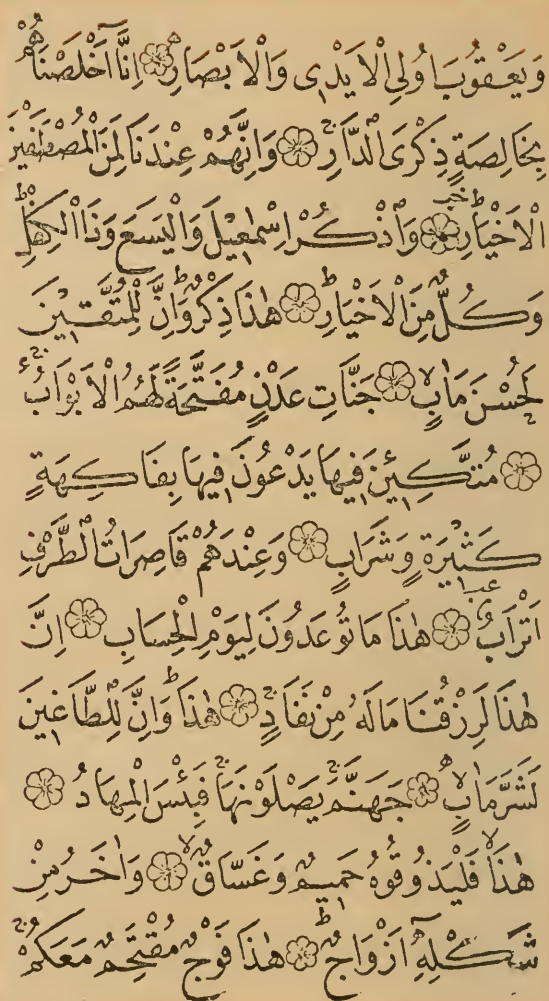 وَيَعْقُوبَ اُولِي الْاَيْدٖي وَالْاَبْصَارِ ۞ اِنَّٓا اَخْلَصْنَاهُمْ
بِخَالِصَةٍ ذِكْرَى الدَّارِ ۞ وَاِنَّهُمْ عِنْدَنَا لَمِنَ الْمُصْطَفَيْنَ
الْاَخْيَارِ ۞ وَاذْكُرْ اِسْمٰعٖيلَ وَالْيَسَعَ وَذَا الْكِفْلِ
وَكُلٌّ مِنَ الْاَخْيَارِ ۞ هٰذَا ذِكْرٌ وَاِنَّ لِلْمُتَّقٖينَ
لَحُسْنَ مَاٰبٍ ۞ جَنَّاتِ عَدْنٍ مُفَتَّحَةً لَهُمُ الْاَبْوَابُ
۞ مُتَّكِـٖٔينَ فٖيهَا يَدْعُونَ فٖيهَا بِفَاكِهَةٍ
كَثٖيرَةٍ وَشَرَابٍ ۞ وَعِنْدَهُمْ قَاصِرَاتُ الطَّرْفِ
اَتْرَابٌ ۞ هٰذَا مَا تُوعَدُونَ لِيَوْمِ الْحِسَابِ ۞ اِنَّ
هٰذَا لَرِزْقُنَا مَا لَهُ مِنْ نَفَادٍ ۞ هٰذَا وَاِنَّ لِلطَّاغٖينَ
لَشَرَّ مَاٰبٍ ۞ جَهَنَّمَ يَصْلَوْنَهَا فَبِئْسَ الْمِهَادُ ۞
هٰذَا فَلْيَذُوقُوهُ حَمٖيمٌ وَغَسَّاقٌ ۞ وَاٰخَرُ مِنْ
شَكْلِهٖٓ اَزْوَاجٌ ۞ هٰذَا فَوْجٌ مُقْتَحِمٌ مَعَكُمْ